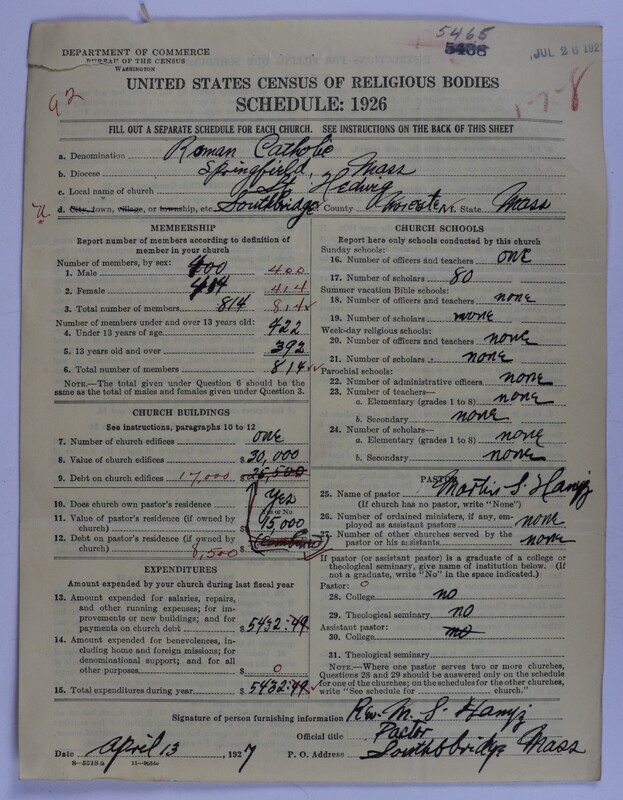 5465
5438
JUL 26 192
DEPARTMENT OF COMMERCE
BUREAU OF THE CENSUS
WASHINGTON
UNITED STATES CENSUS OF RELIGIOUS BODIES
SCHEDULE: 1926
92
1-7-8
FILL OUT A SEPARATE SCHEDULE FOR EACH CHURCH. SEE INSTRUCTIONS ON THE BACK OF THIS SHEET
a. Denomination Roman Catholic
b. Diocese Springfield, Mass
c. Local name of church St. Hedwig
d. City, town, village, or township, etc. Southbridge County Worcester State Mass
MEMBERSHIP
Report number of members according to definition of member in your church
Number of members, by sex:
1. Male 400 400
2. Female 414 414
3. Total number of members 814 814
Number of members under and over 13 years old:
4. Under 13 years of age 422
5. 13 years old and over 392
6. Total number of members 814
NOTE.—The total given under Question 6 should be the same as the total of males and females given under Question 3.
CHURCH BUILDINGS
See instructions, paragraphs 10 to 12
7. Number of church edifices one
8. Value of church edifices $ 30,000
9. Debt on church edifices 17,000 $ 25,500
10. Does church own pastor's residence Yes
Yes or No
11. Value of pastor's residence (if owned by church) $ 15,000
12. Debt on pastor's residence (if owned by church) 8,500 $ (Combined)
EXPENDITURES
Amount expended by your church during last fiscal year
13. Amount expended for salaries, repairs, and other running expenses; for improvements or new buildings; and for payments on church debt $ 5432.49
14. Amount expended for benevolences, including home and foreign missions; for denominational support; and for all other purposes $ 0
15. Total expenditures during year $ 5432.49
CHURCH SCHOOLS
Report here only schools conducted by this church
Sunday schools:
16. Number of officers and teachers one
17. Number of scholars 80
Summer vacation Bible schools:
18. Number of officers and teachers none
19. Number of scholars none
Week-day religious schools:
20. Number of officers and teachers none
21. Number of scholars none
Parochial schools:
22. Number of administrative officers none
23. Number of teachers—
a. Elementary (grades 1 to 8) none
b. Secondary none
24. Number of scholars—
a. Elementary (grades 1 to 8) none
b. Secondary none
PASTOR
25. Name of pastor S.
(If church has no pastor, write "None")
26. Number of ordained ministers, if any, employed as assistant pastors none
27. Number of other churches served by the pastor or his assistants none
If pastor (or assistant pastor) is a graduate of a college or theological seminary, give name of institution below. (If not a graduate, write "No" in the space indicated.)
Pastor: 0
28. College no
29. Theological seminary no
Assistant pastor:
30. College no
31. Theological seminary
NOTE.—Where one pastor serves two or more churches, Questions 28 and 29 should be answered only on the schedule for one of the churches; on the schedules for the other churches, write "See schedule for church."
Signature of person furnishing information Rev. M. S.
Official title Pastor
Date April 13 1927 P. O. Address Southbridge Mass
8—5513A